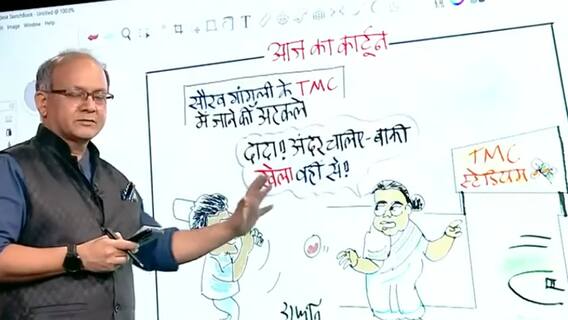 Sketchbook - Untitled @ 100.0%
Image Window
आज का कार्टून
सौरव गांगुली के TMC
में जाने की अटकलें
दादा! अंदर चलिए - बाकी
खेला वहीं से!
TMC
स्टेडियम